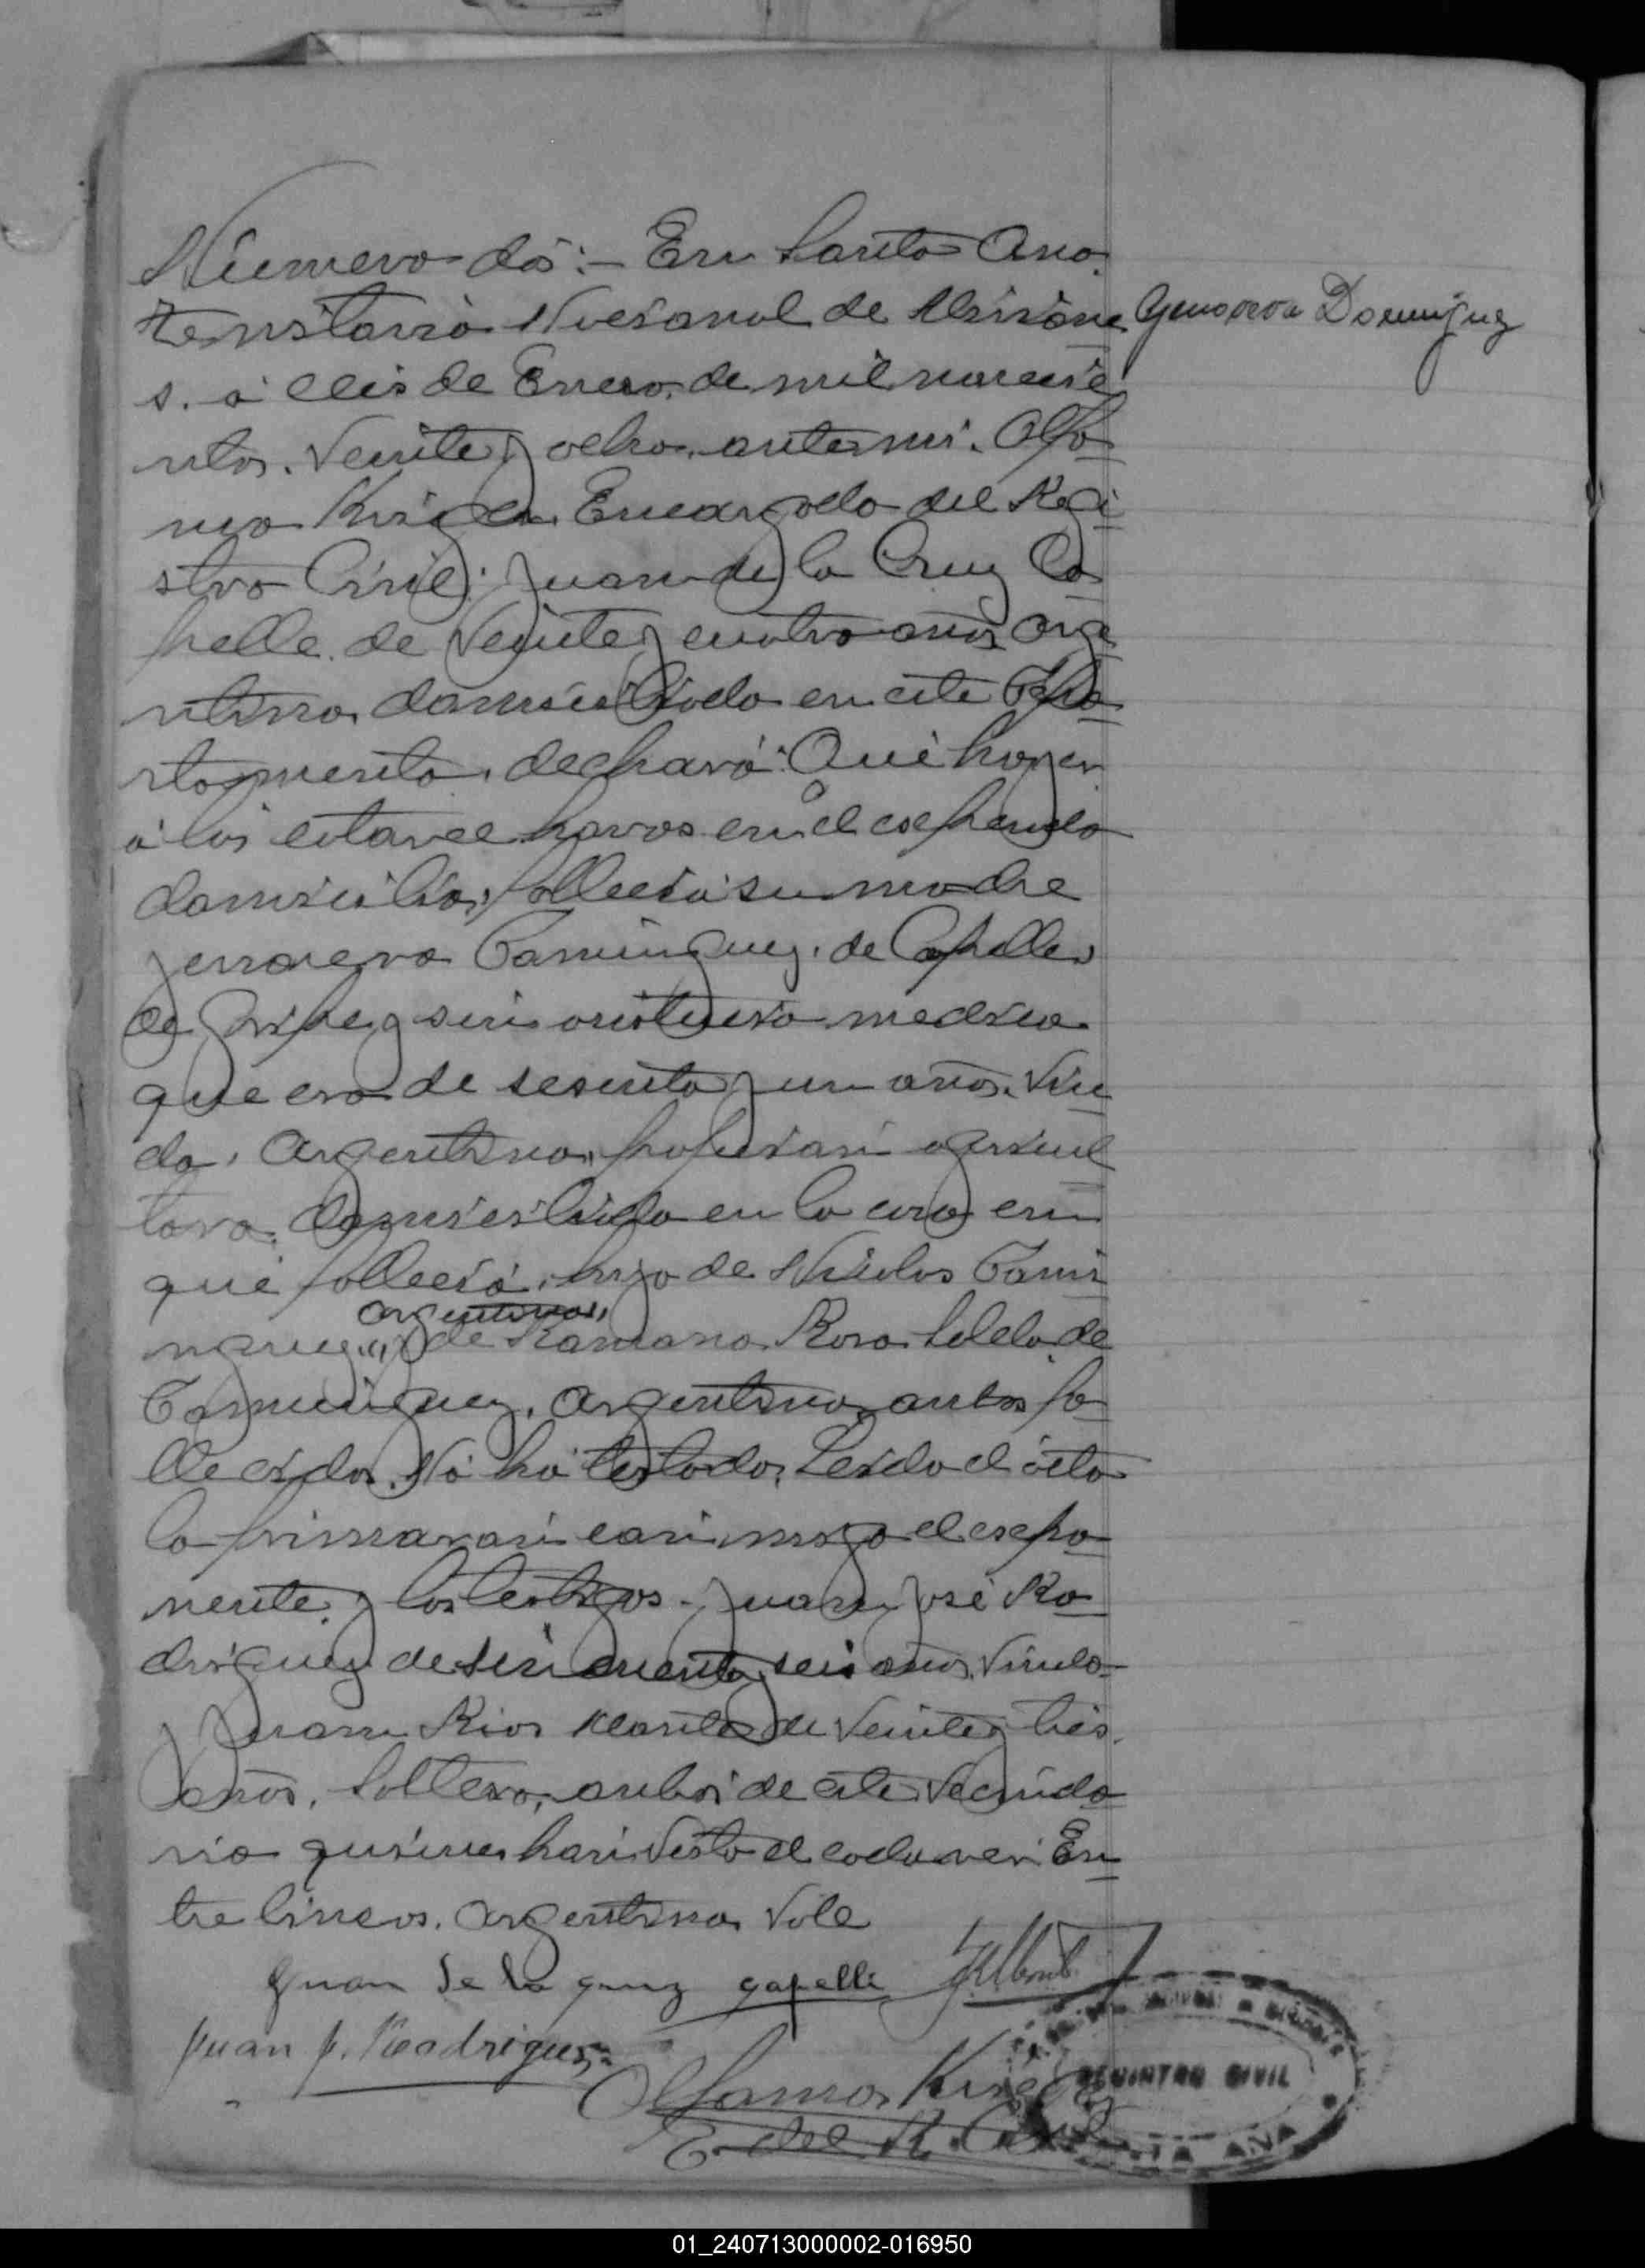 Número dós:- En Santa Ana.
territorio Nacional de Misione
s. á seis de Enero, de mil novecie
ntos. Veinte y ocho. ante mi. Alfo
nso Encargado del Regi
stro Civil: Juan de la Cruz Ca
pelle. de Veinte y cuatro años, Arge
ntino, domiciliado en este Depa
rtamento, declaró: Que hoy
á las horas en el espresado
domicilio, falleció su madre
Jenoveva Dominguez. de Capelle,
de Gripe, y sin asistencia medica.
que era de sesenta y un años. Viu
da, Argentina, profesion agricul
tora, domiciliada en la casa en
que falleció, hija de Nicolas Domi
nguez, argentino,
y de Ramona Rosa de
Dominguez, Argentina, ambos fa
llecidos. No há testado. Leida el acta
la firmaron conmigo el espo
nente, y los testigos. Juan José Ro
driguez de sincuenta y seis años, Viudo
y Juan Rios de Veinte y tres
años, Soltero, ambos de este Vecinda
rio quienes han visto el cadaver. En
tre lineas. Argentino, Vale
Genoveva Dominguez
Juan de la Cruz Capelli
Juan J. Rodriguez
Alfonso
E. del R. Civil
REGISTRO CIVIL
SANTA ANA
01_240713000002-016950